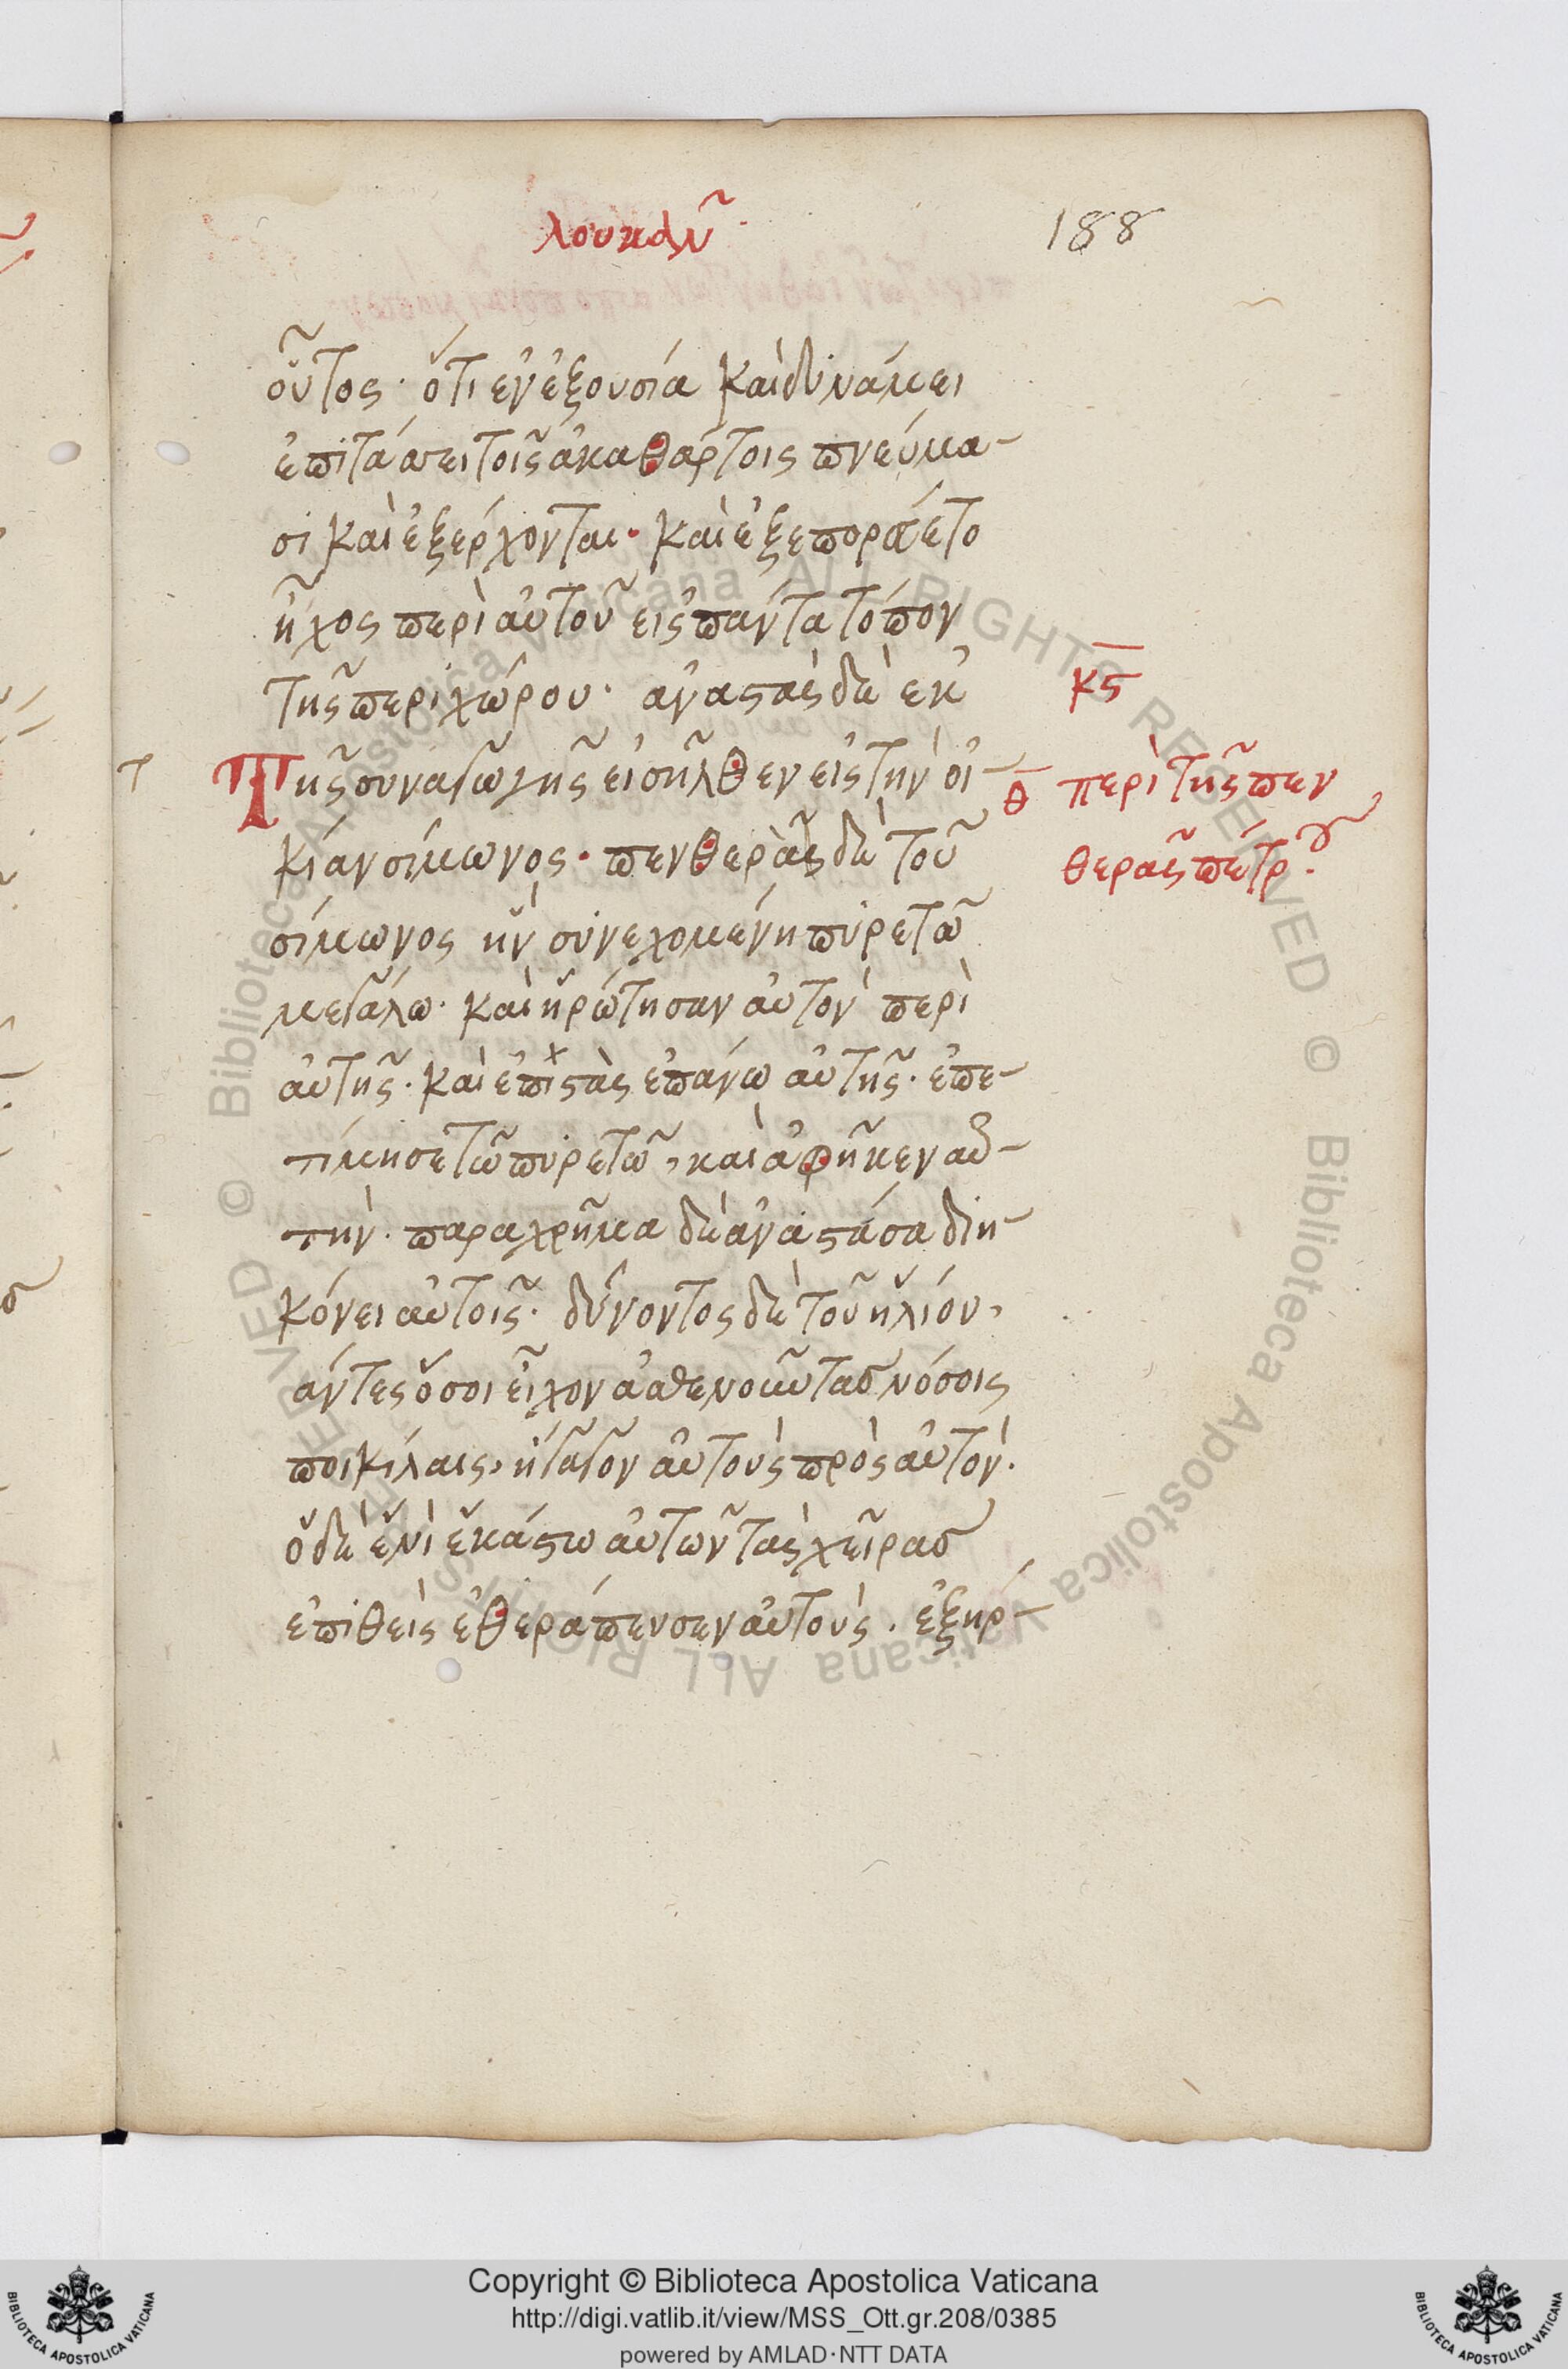 λουκᾶν
188
οὗτος· ὅτι ἐν ἐξουσία καὶ δυνάμει
ἐπιτάσσει τοῖς ἀκαθάρτοις πνεύμα-
σι καὶ ἐξέρχονται· καὶ ἐξεπορεύετο
ἦχος περὶ αὐτοῦ εἰς πάντα τόπον
τῆς περιχώρου· ἀναστὰς δὲ ἐκ
κϛ
Τῆς συναγωγῆς εἰσῆλθεν εἰς τὴν οἰ-
θ περὶ τῆς πεν
κίαν σίμωνος· πενθερὰ δὲ τοῦ
θερᾶς πέτρου·
σίμωνος ἦν συνεχομένη πυρετῶ
μεγάλω· καὶ ἠρώτησαν αὐτὸν περὶ
αὐτῆς· καὶ ἐπιστὰς ἐπάνω αὐτῆς· ἐπε-
τίμησε τῶ πυρετῶ, καὶ ἀφῆκεν αὐ-
τήν· παραχρῆμα δὲ ἀναστάσα διη-
κόνει αὐτοῖς· δύνοντος δὲ τοῦ ἡλίου,
άντες ὅσοι εἶχον ἀσθενοῦντας νόσοις
ποικίλαις, ἤγαγον αὐτοὺς πρὸς αὐτόν·
ὁ δὲ ἑνὶ ἑκάστω αὐτῶν τὰς χεῖρας
ἐπιθεὶς ἐθεράπευσεν αὐτούς· ἐξήρ-
Copyright © Biblioteca Apostolica Vaticana
http://digi.vatlib.it/view/MSS_Ott.gr.208/0385
powered by AMLAD·NTT DATA